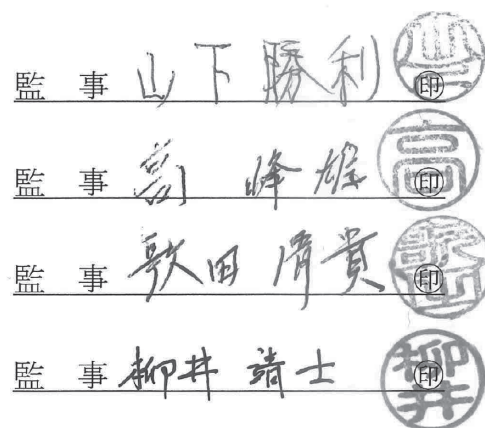 監 事 山下勝利 ㊞
監 事 高 峰雄 ㊞
監 事 歌田 貴 ㊞
監 事 柳井 靖士 ㊞